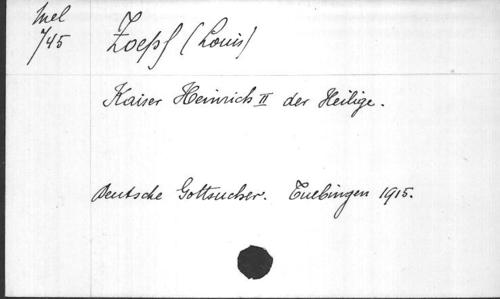 Mel
745
Zoepf (Louis)
Kaiser Heinrich II der Heilige.
Deutsche Gottsucher. Tuebingen 1915.